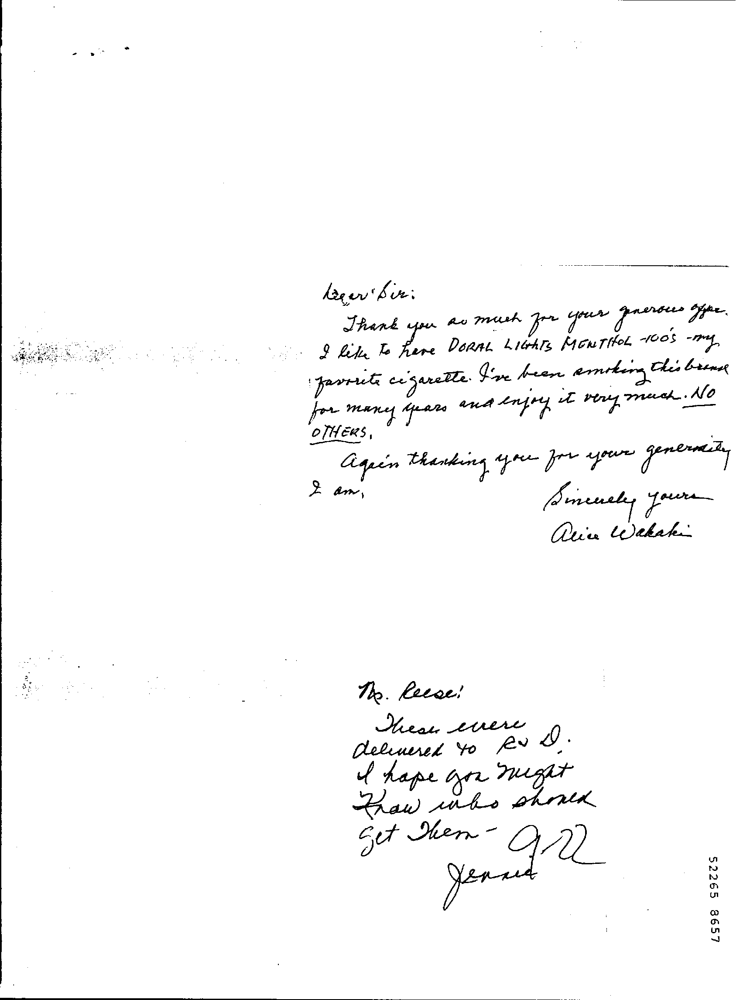 Dear Sir:
Thank you so much for your generous offer.
I like to have DORAL LIGHTS MENTHOL -100's -my
favorite cigarette. I've been smoking this brand
for many years and enjoy it very much. NO
OTHERS.
Again thanking you for your generosity
I am,
Sincerely yours
Alice Wakaki
Ms. Reese:
These were
delivered to R&D.
I hope you might
Know who should
get them -
Jennie
52265 8657